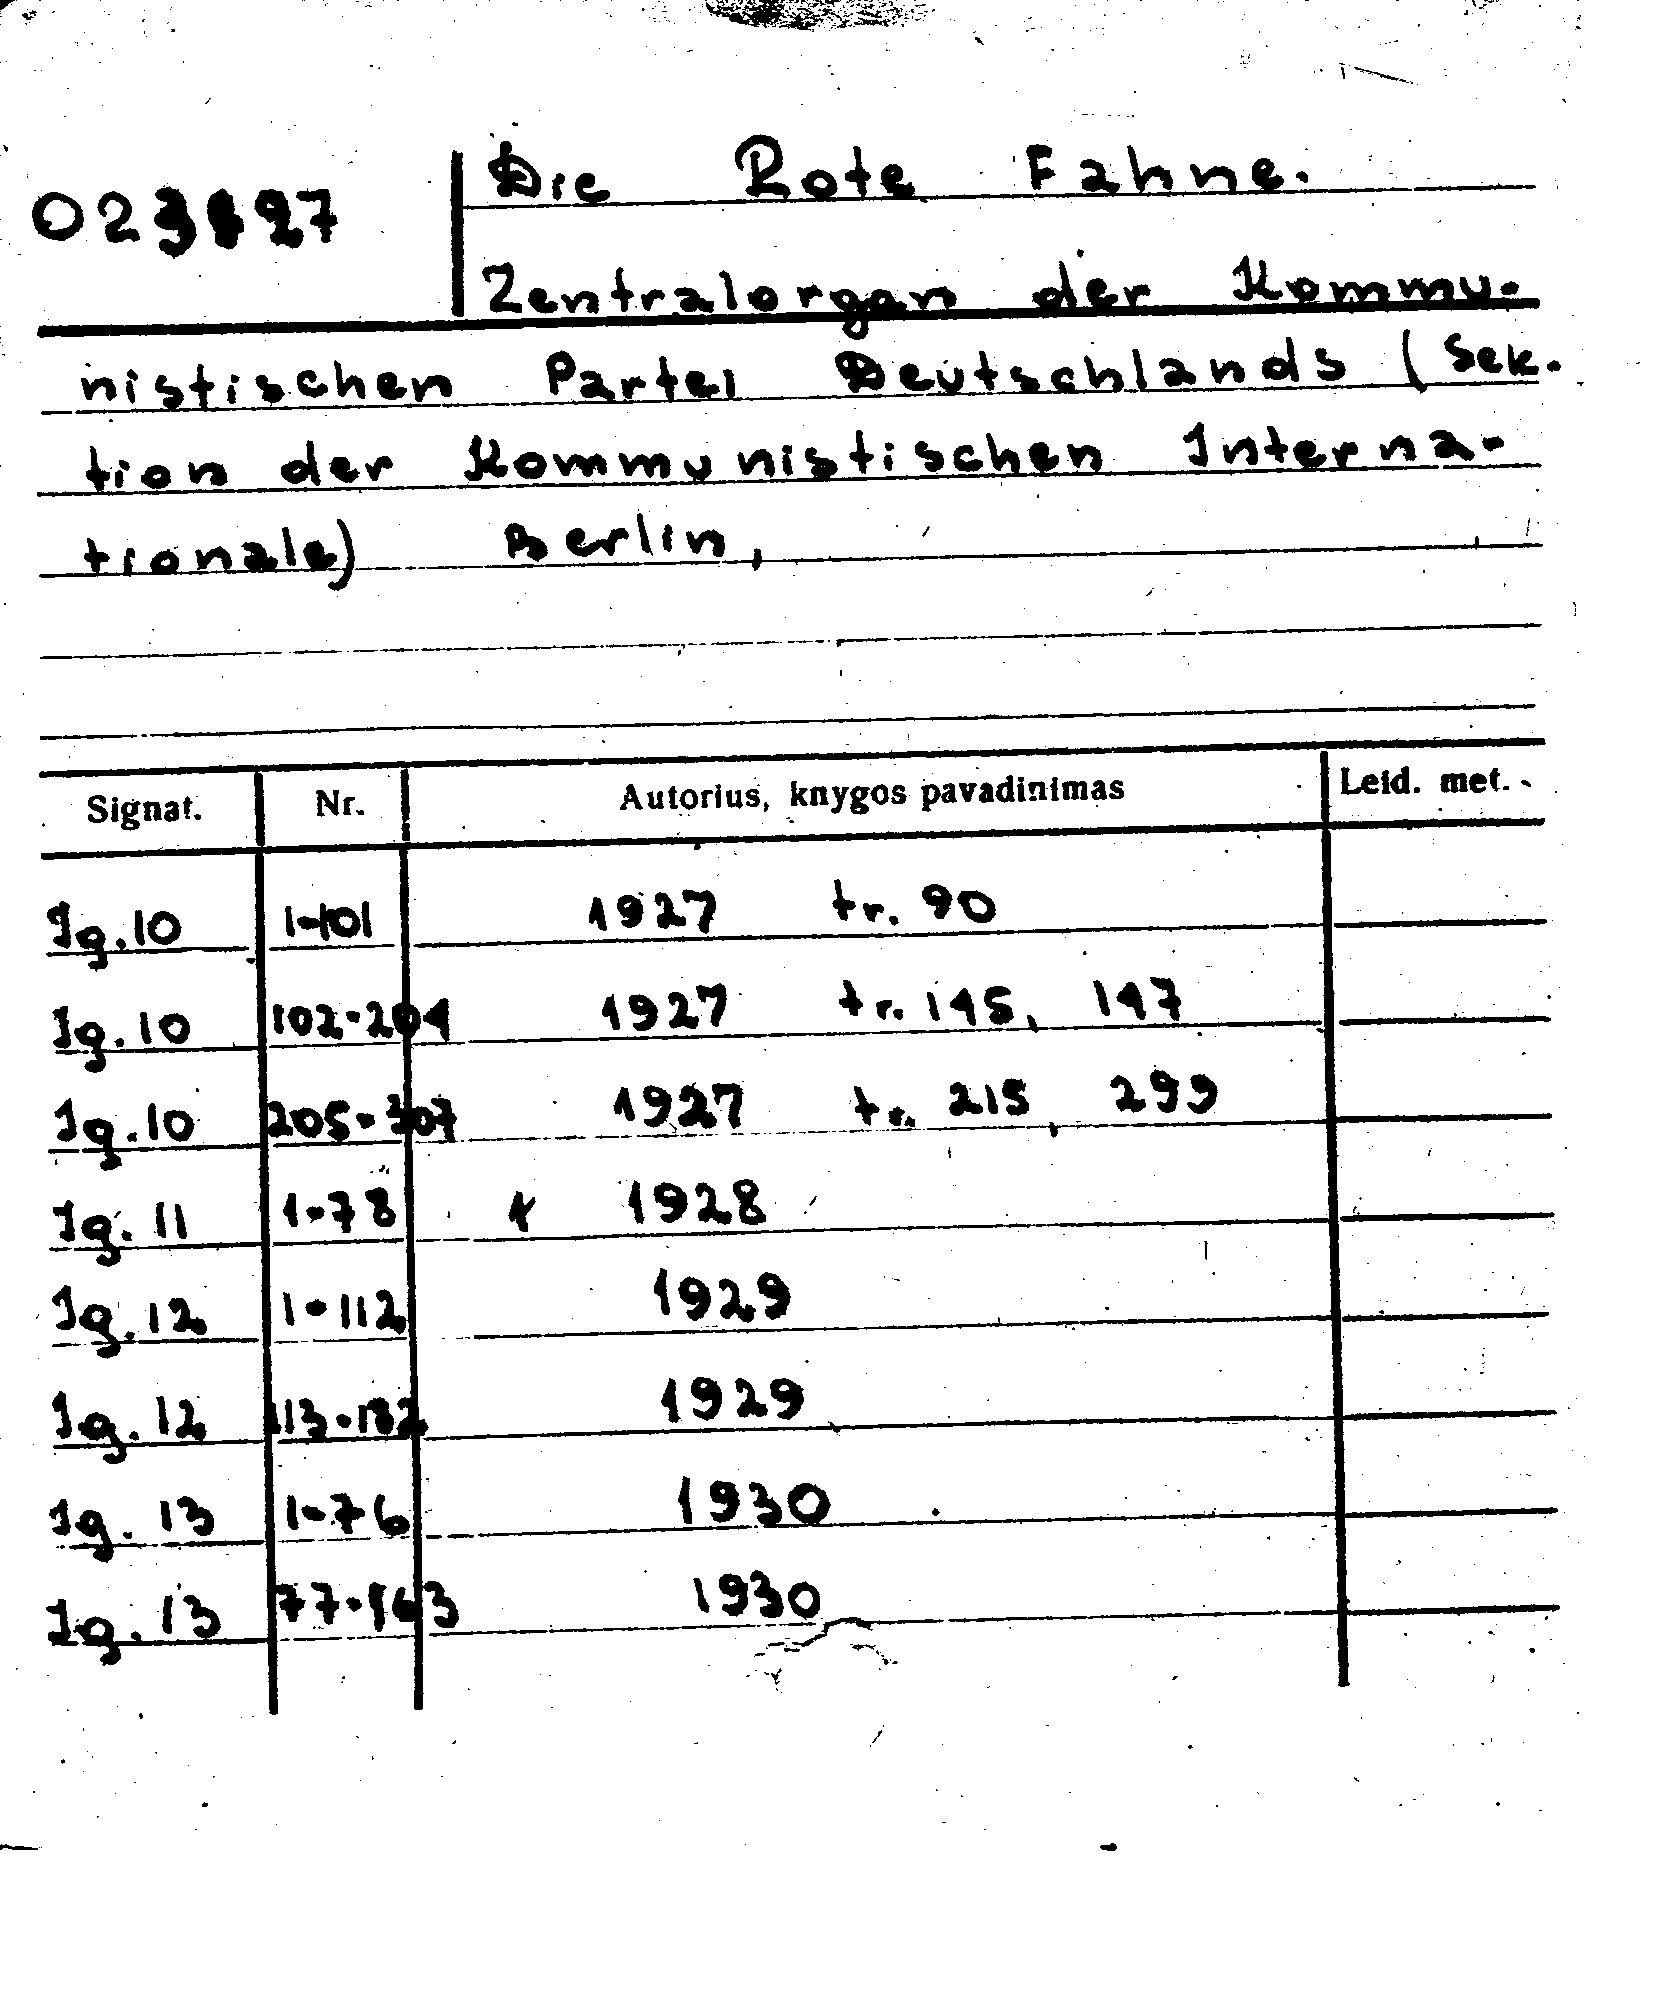 Die Rote Fahne.
Zentralorgan der Kommu-
nistischen Partei Deutschlands (Sek-
tion der Kommunistischen Interna-
tionale) Berlin,
Signat. Nr. Autorius, knygos pavadinimas Leid. met.
Jg. 10 1-101 1927 tr. 90
Jg. 10 102-204 1927 tr. 145, 147
Jg. 10 205-307 1927 tr. 215, 299
Jg. 11 1-78 1928
Jg. 12 1-112 1929
Jg. 12 113-182 1929
Jg. 13 1-76 1930
Jg. 13 77-163 1930